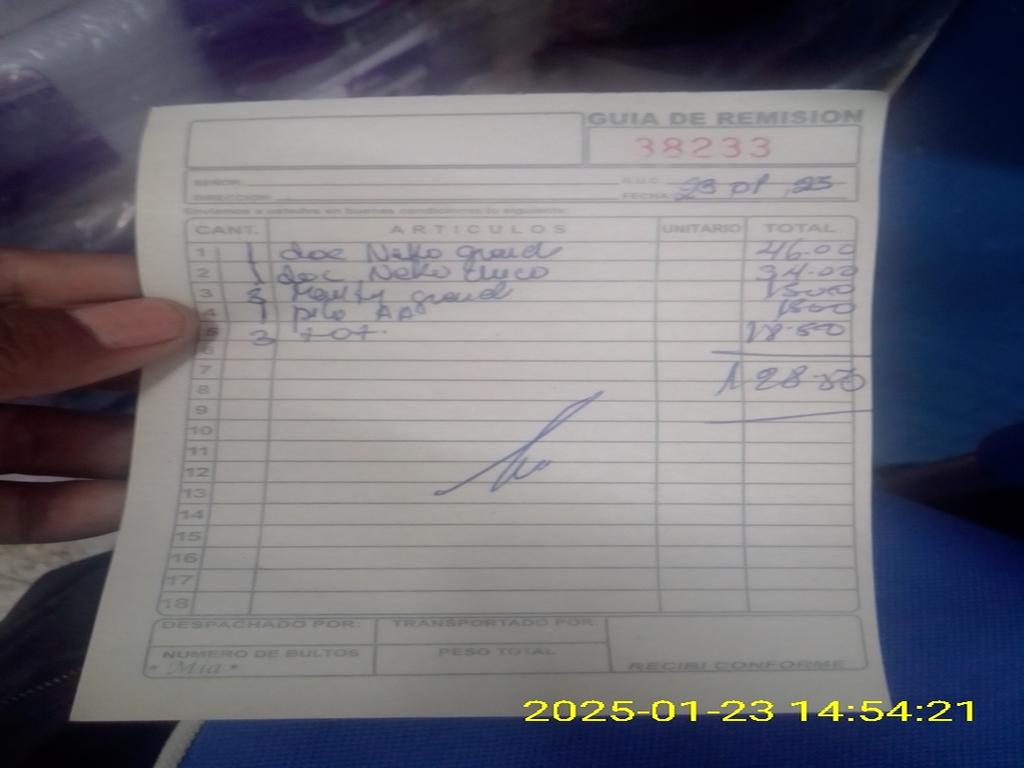 GUIA DE REMISION
38233
SEÑOR: R.U.C.
DIRECCION: FECHA: 23 01 25
Enviamos a ustedes en buenas condiciones lo siguiente:
CANT. ARTICULOS UNITARIO TOTAL
1 1 doc Neko grand 46.00
2 1 doc Neko chico 34.00
3 3 grand 15.00
4 1 AA 15.00
5 3 18.50
6
7
8 128.50
9
10
11
12
13
14
15
16
17
18
DESPACHADO POR: TRANSPORTADO POR:
NUMERO DE BULTOS PESO TOTAL RECIBI CONFORME
* Mia *
2025-01-23 14:54:21